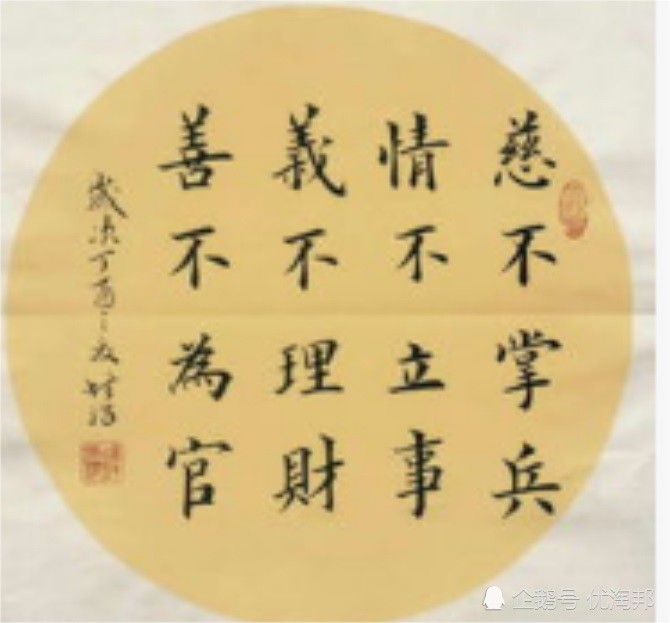 慈不掌兵
情不立事
義不理財
善不為官
歲次丁酉之
企鹅号 优淘邦